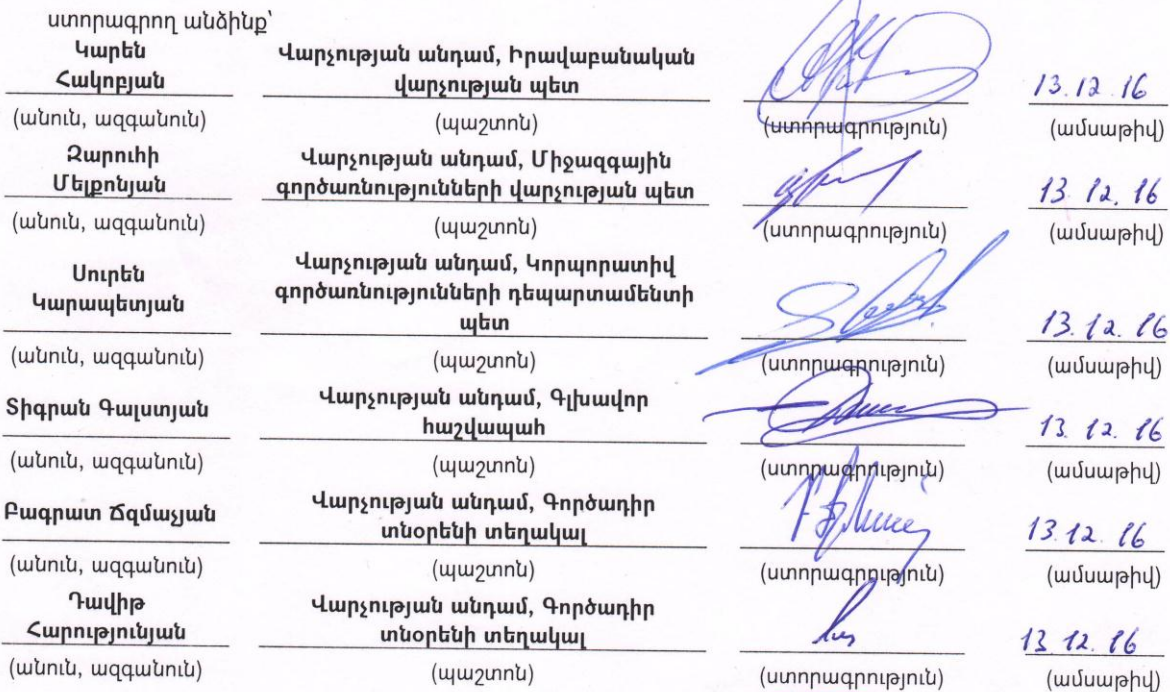 ստորագրող անձինք՝
Կարեն Վարչության անդամ, Իրավաբանական
Հակոբյան վարչության պետ 13.12.16
(անուն, ազգանուն) (պաշտոն) (ստորագրություն) (ամսաթիվ)
Զարուհի Վարչության անդամ, Միջազգային
Մելքոնյան գործառնությունների վարչության պետ 13.12.16
(անուն, ազգանուն) (պաշտոն) (ստորագրություն) (ամսաթիվ)
Սուրեն Վարչության անդամ, Կորպորատիվ
Կարապետյան գործառնությունների դեպարտամենտի
պետ 13.12.16
(անուն, ազգանուն) (պաշտոն) (ստորագրություն) (ամսաթիվ)
Տիգրան Գալստյան Վարչության անդամ, Գլխավոր
հաշվապահ 13.12.16
(անուն, ազգանուն) (պաշտոն) (ստորագրություն) (ամսաթիվ)
Բագրատ Ճզմաչյան Վարչության անդամ, Գործադիր
տնօրենի տեղակալ 13.12.16
(անուն, ազգանուն) (պաշտոն) (ստորագրություն) (ամսաթիվ)
Դավիթ Վարչության անդամ, Գործադիր
Հարությունյան տնօրենի տեղակալ 13.12.16
(անուն, ազգանուն) (պաշտոն) (ստորագրություն) (ամսաթիվ)